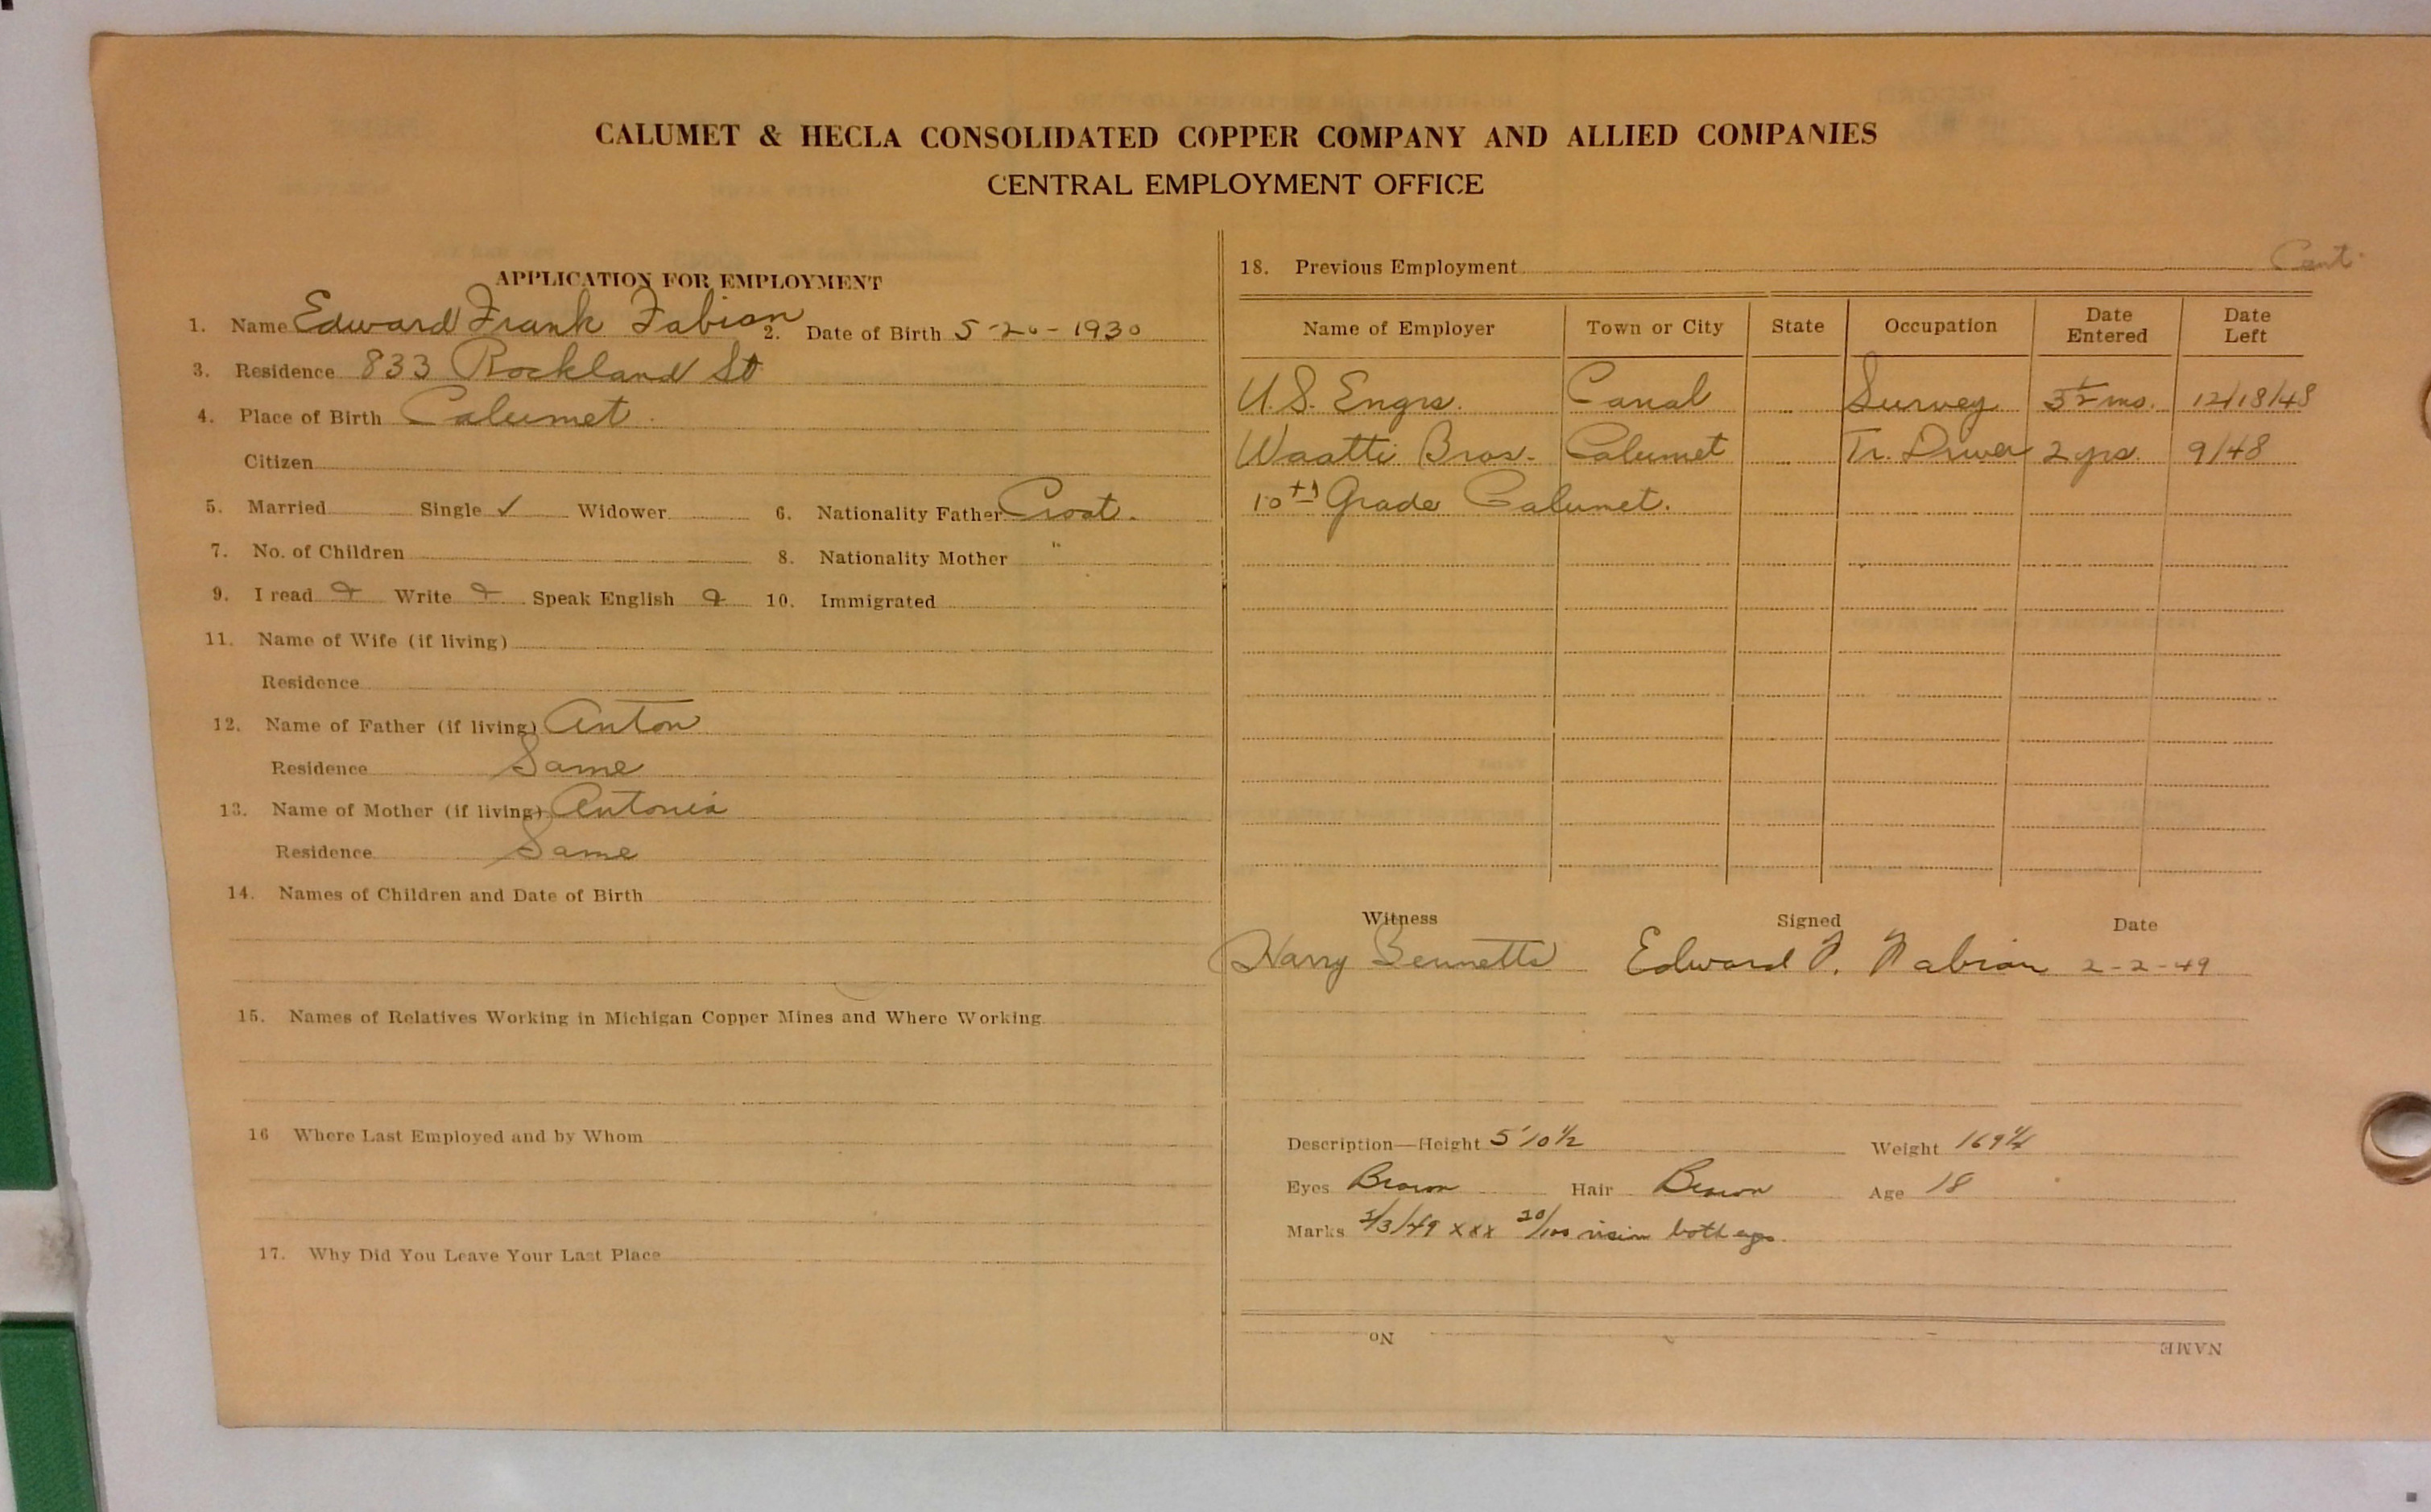 CALUMET & HECLA CONSOLIDATED COPPER COMPANY AND ALLIED COMPANIES
CENTRAL EMPLOYMENT OFFICE
APPLICATION FOR EMPLOYMENT
1. Name Edward Frank Fabian 2. Date of Birth 5-20-1930
3. Residence 833 Rockland St
4. Place of Birth Calumet
Citizen
5. Married Single ✓ Widower 6. Nationality Father Croat.
7. No. of Children 8. Nationality Mother "
9. I read Write Speak English 10. Immigrated
11. Name of Wife (if living)
Residence
12. Name of Father (if living) Anton
Residence Same
13. Name of Mother (if living) Antonia
Residence Same
14. Names of Children and Date of Birth
15. Names of Relatives Working in Michigan Copper Mines and Where Working
16 Where Last Employed and by Whom
17. Why Did You Leave Your Last Place
18. Previous Employment Cont.
Name of Employer Town or City State Occupation Date Entered Date Left
U.S. Engrs. Canal Survey 3½ mo. 12/18/48
Waatti Bros. Calumet Tr. Driver 2 yrs. 9/48
10th Grade Calumet.
Witness Signed Date
Harry Bennetts Edward F. Fabian 2-2-49
Description—Height 5'10½ Weight 169¼
Eyes Brown Hair Brown Age 18
Marks 2/3/49 xxx 20/100 vision both eyes.
No
NAME